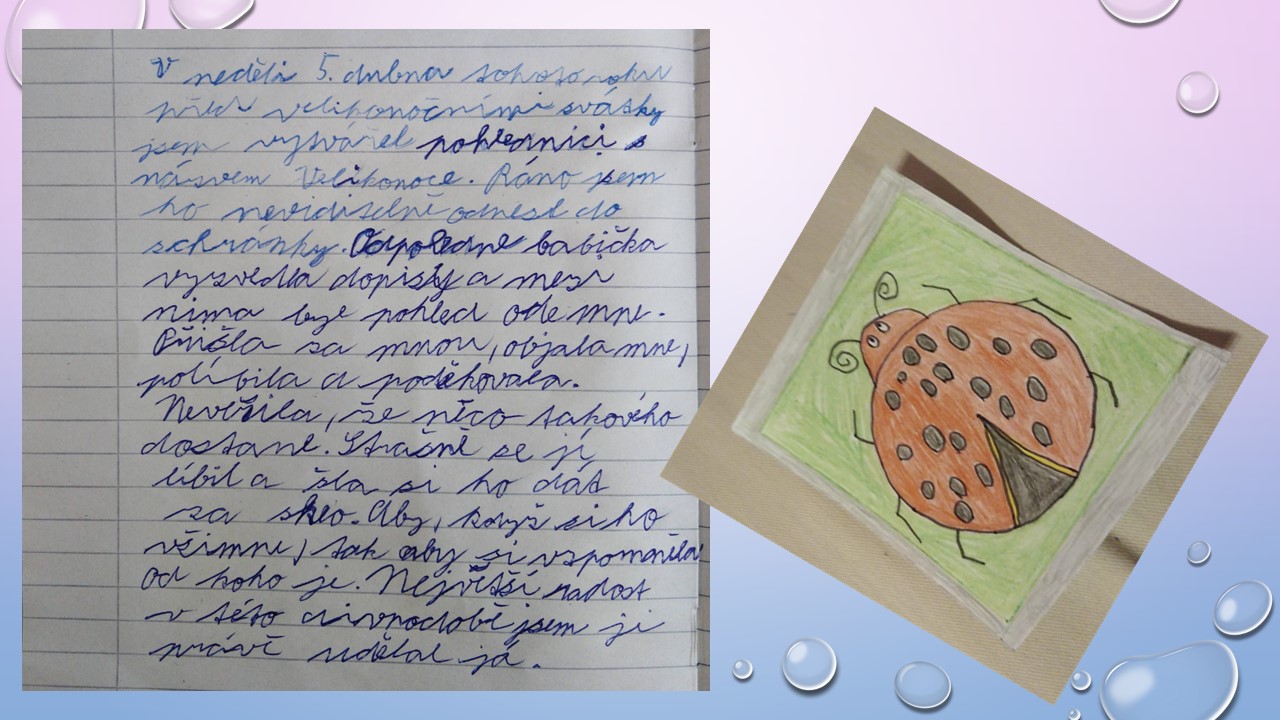 V neděli 5. dubna tohoto roku
před velikonočními svátky
jsem vytvářel pohlednici s
názvem Velikonoce. Ráno jsem
ho neviditelně odnesl do
schránky. Odpoledne babička
vyzvedla dopisy a mezi
nima byl pohled ode mne.
Přišla za mnou, objala mne,
políbila a poděkovala.
Nevěřila, že něco takového
dostane. Strašně se jí
líbil a šla si ho dát
za sklo. Aby, když si ho
všimne, tak aby si vzpomněla
od koho je. Největší radost
v této divnodobě jsem ji
právě udělal já.